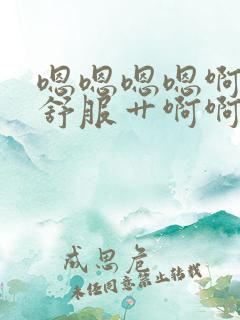 嗯嗯嗯嗯啊
舒服艹啊啊
成思危
未经同意禁止转载